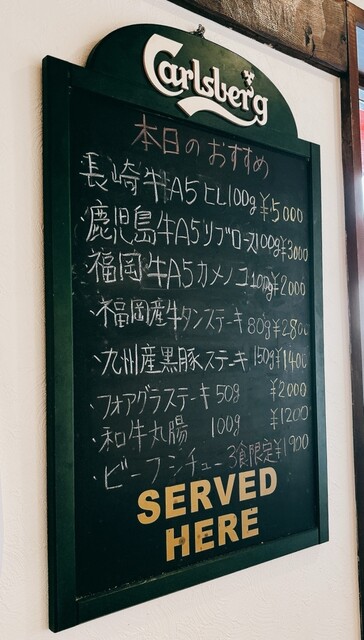 Carlsberg
本日のおすすめ
長崎牛A5ヒレ100g ¥5000
・鹿児島牛A5リブロース100g¥3000
・福岡牛A5カメノコ100g¥2000
・福岡産牛タンステーキ80g¥2800
・九州産黒豚ステーキ150g¥1400
・フォアグラステーキ50g ¥2000
・和牛丸腸 100g ¥1200
・ビーフシチュー3食限定¥1900
SERVED
HERE